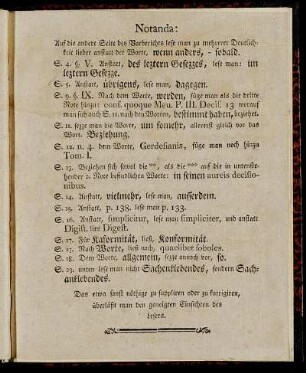 Notanda:
Auf die andere Seite des Vorberichts lese man zu mehrerer Deutlich-
keit lieber anstatt der Worte, wenn anders, - sobald.
S. 4. §. V. Anstatt, des letztern Gesetzes, lese man: im
letztern Gesetze.
S. 5. Anstatt, übrigens, lese man, dagegen.
S. 9. §. IX. Nach dem Worte, werden, setze man als die dritte
Note hinzu: conf. quoque Meu. P. III. Decis. 13 worauf
man sich auch S. 11. nach den Worten, bestimmt haben, beziehet.
S. 11. setze man die Worte, um somehr, allererst gleich vor das
Wort, Beziehung.
S. 12. n. 4. dem Worte, Gerdesianis, füge man noch hinzu
Tom. I.
S. 13. Beziehen sich sowol die als auf die in untenste-
hender 2. Note befindlichen Worte: in seinen aureis decisio-
nibus.
S. 14. Anstatt, vielmehr, lese man, ausserdem.
S. 15. Anstatt, p. 138. lese man p. 133.
S. 16. Anstatt, simplicitur, lese man simpliciter, und anstatt
Digist. lies Digest.
S. 17. Für Kasormität, ließ, Konformität.
S. 17. Nach Worte, lies noch, quaelibet soboles.
S. 18. Dem Worte, allgemein, setze annoch vor, so.
S. 23. unten lese man nicht Sachenklebendes, sondern Sach-
anklebendes.
Das etwa sonst nöthige zu suppliren oder zu korrigiren,
überläßt man den geneigten Einsichten des
Lesers.